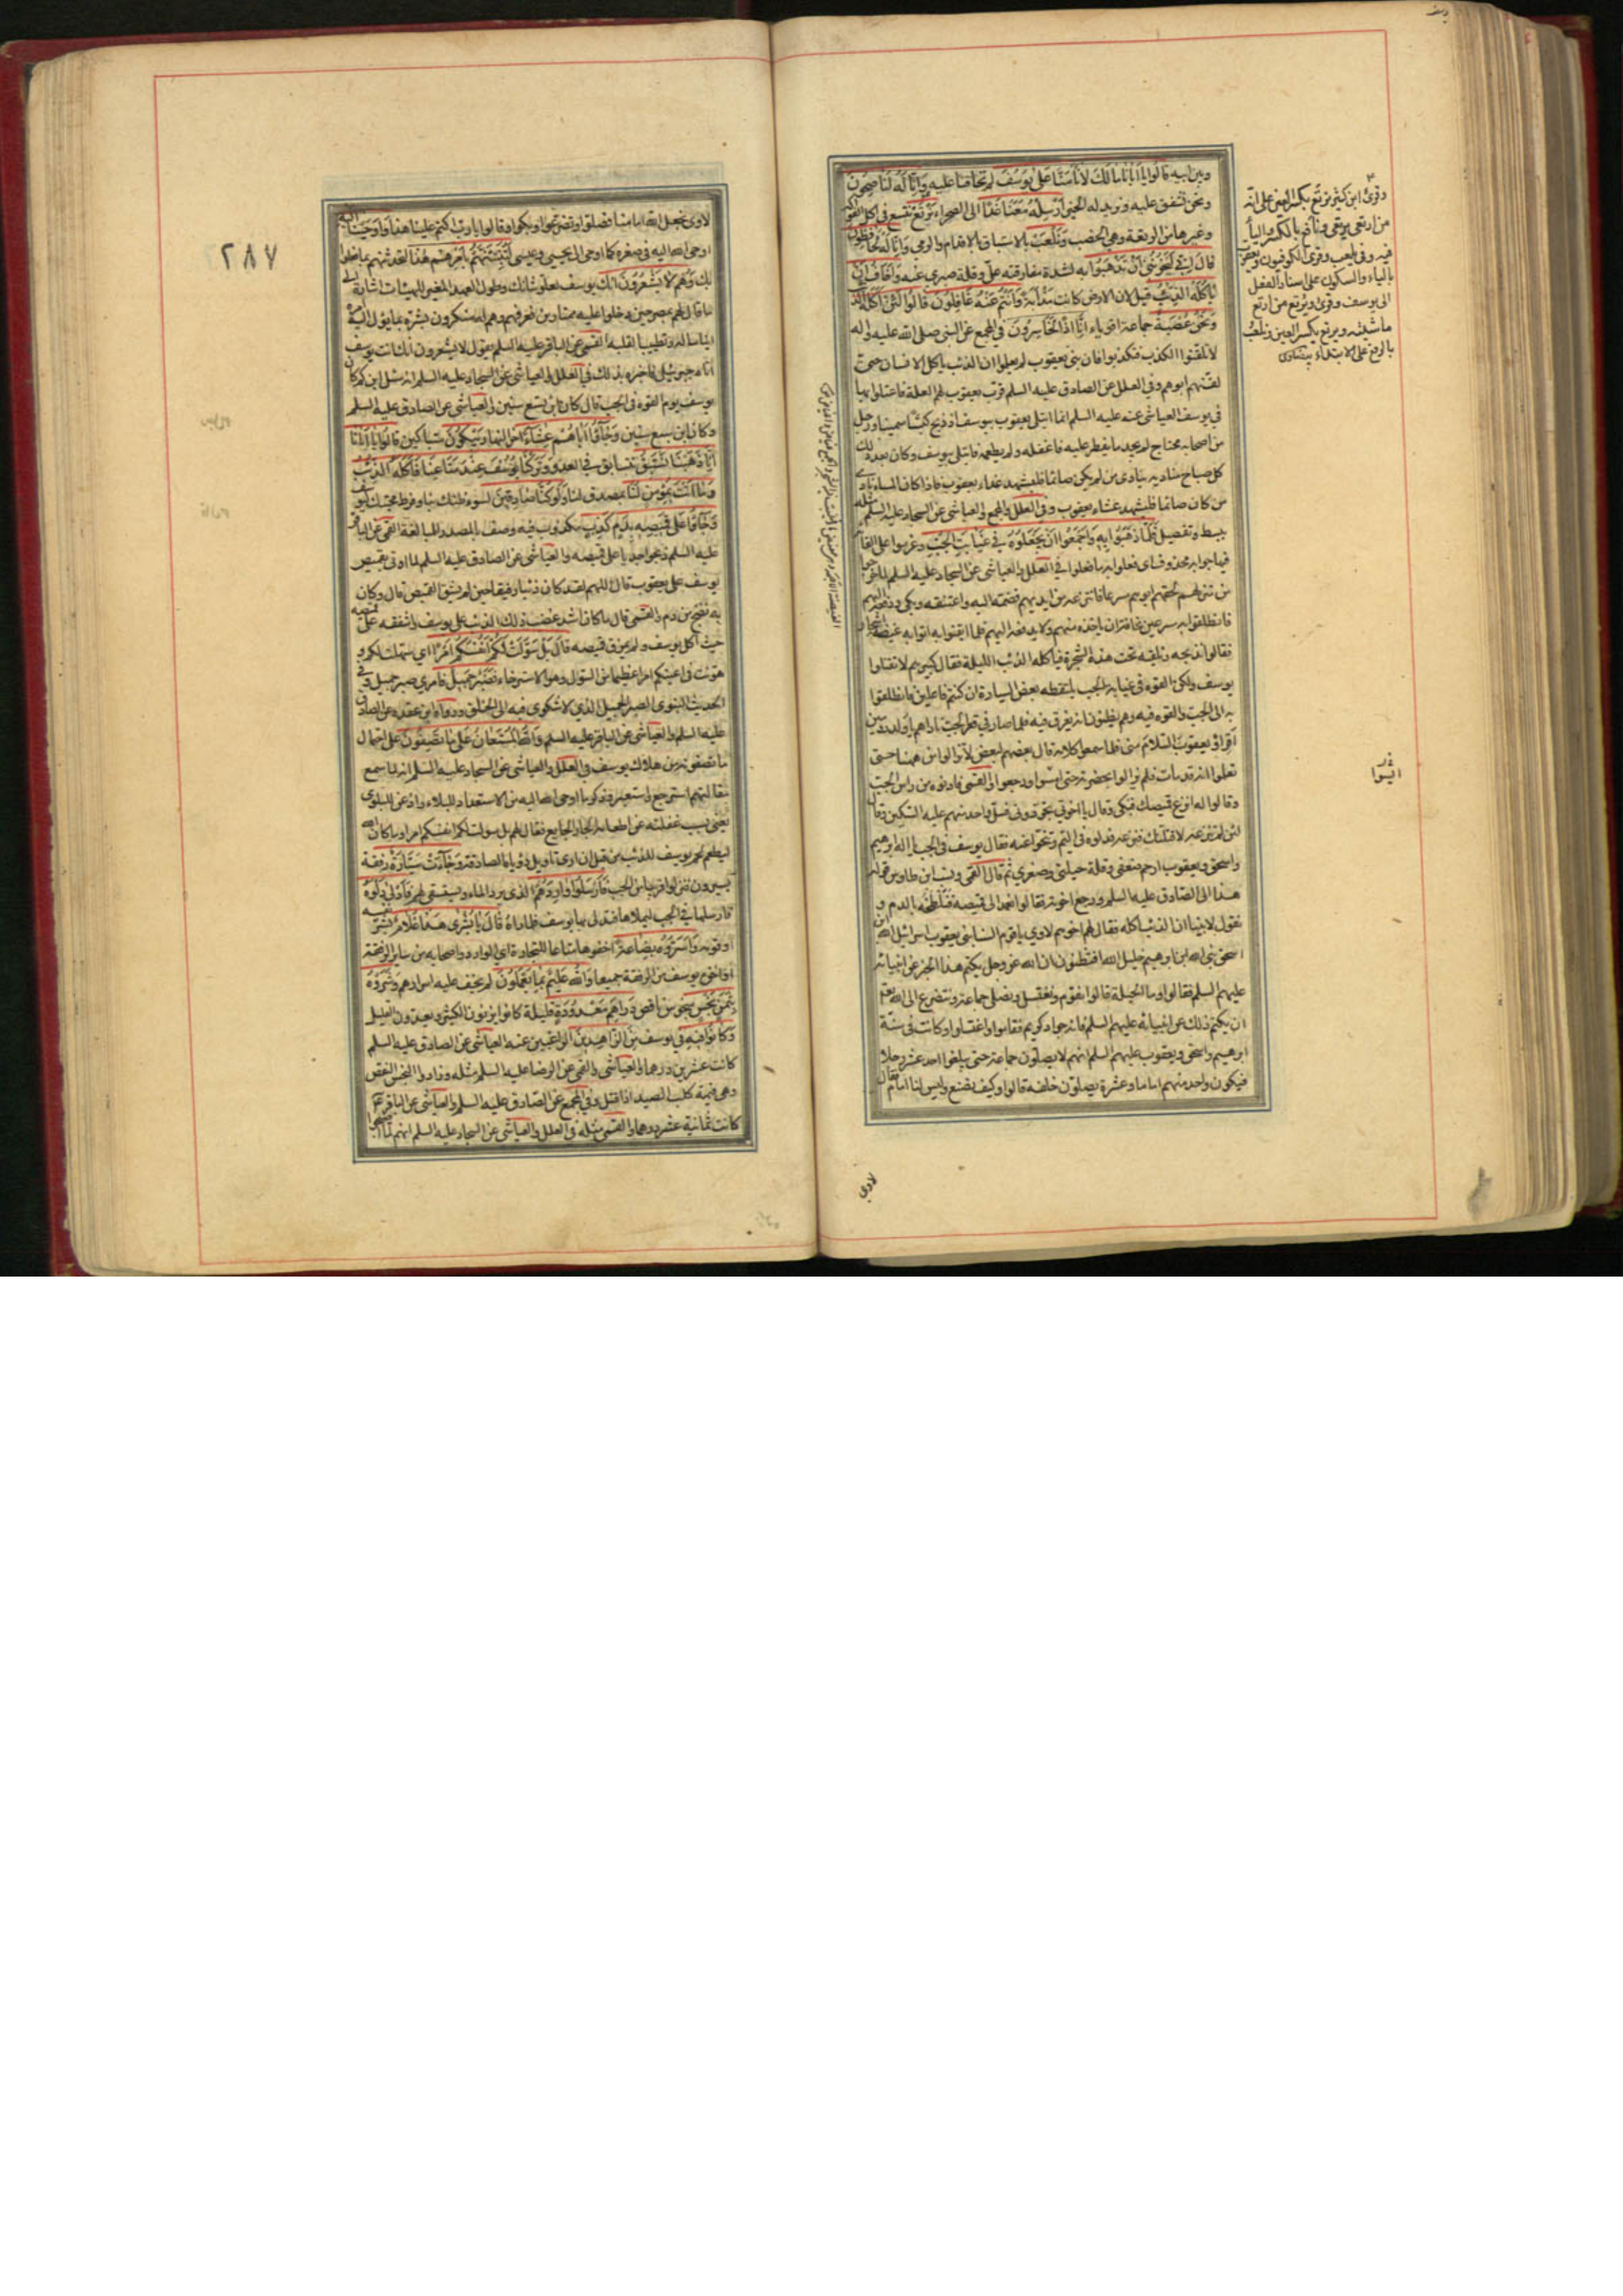 وبين ابيه قالوا يا ابانا مالك لا تأمنا على يوسف لم تخافنا عليه وانا له لناصحون
ونحن نشفق عليه ونريد له الخير ارسله معنا غدا الى الصحراء نرتع نتسع في اكل الفواكه
وغيرها من الرتعة وهي الخصب ونلعب بالاستباق بالاقدام والرمي وانا له لحافظون
قال اني ليحزنني ان تذهبوا به لشدة مفارقته علي وقلة صبري عنه واخاف ان
ياكله الذئب قيل لان الارض كانت مذأبة وانتم عنه غافلون قالوا لئن اكله الذئب
ونحن عصبة جماعة اقوياء انا اذا لخاسرون في المجمع عن النبي صلى الله عليه واله
لا تلقنوا الكذب فتكذبوا فان بني يعقوب لم يعلموا ان الذئب ياكل الانسان حتى
لقنهم ابوهم وفي العلل عن الصادق عليه السلم قرب يعقوب لهم العلة فاعتلوا بها
في يوسف العياشي عنه عليه السلم انما ابتلى يعقوب بيوسف اذ ذبح كبشا سمينا ورجل
من اصحابه محتاج لم يجد ما يفطر عليه فاغفله ولم يطعمه فابتلى بيوسف وكان بعد ذلك
كل صباح مناديه ينادي من لم يكن صائما فليشهد غداء يعقوب فاذا كان المساء نادى
من كان صائما فليشهد عشاء يعقوب وفي العلل والمجمع والعياشي عن السجاد عليه السلم مثله
ببسط وتفصيل فلما ذهبوا به واجمعوا ان يجعلوه في غيابت الجب وعزموا على القائه
فيها جوابه محذوف اي فعلوا به ما فعلوا في العلل والعياشي عن السجاد عليه السلم لما خرجوا
من منزلهم لحقهم ابوهم مسرعا فانتزعه من ايديهم فضمه اليه واعتنقه وبكى ودفعه اليهم
فانطلقوا به مسرعين مخافة ان ياخذه منهم ولا يدفعه اليهم فلما ايقنوا به اتوا به غيضة اشجار
فقالوا نذبحه ونلقيه تحت هذه الشجرة فياكله الذئب الليلة فقال كبيرهم لا تقتلوا
يوسف ولكن القوه في غيابة الجب يلتقطه بعض السيارة ان كنتم فاعلين فانطلقوا
به الى الجب والقوه فيه وهم يظنون انه يغرق فيه فلما صار في قعر الجب ناداهم يا ولد رومين
اقرؤا يعقوب السلام مني فلما سمعوا كلامه قال بعضهم لبعض لا تزالوا من ههنا حتى
تعلموا انه قد مات فلم يزالوا بحضرته حتى ايسوا ورجعوا والقمي فادنوه من راس الجب
وقالوا له انزع قميصك فبكى وقال يا اخوتي تجردوني فسل واحد منهم عليه السكين وقال
لئن لم تنزعه لاقتلنك فنزعه فدلوه في اليم وتنحوا عنه فقال يوسف في الجب يا اله ابرهيم
واسحق ويعقوب ارحم ضعفي وقلة حيلتي وصغري ثم قال القمي ونسب ابن طاوس قوله
هذا الى الصادق عليه السلم ورجع اخوته فقالوا نعمد الى قميصه فنلطخه بالدم و
نقول لابينا ان الذئب اكله فقال لهم اخوهم لاوي يا قوم السنا بني يعقوب اسرائيل الله ابن
اسحق نبي الله ابن ابرهيم خليل الله افتظنون ان الله عز وجل يكتم هذا الخبر عن انبيائه
عليهم السلم فقالوا وما الحيلة قالوا نقوم ونغتسل ونصلي جماعة ونتضرع الى الله تعالى
ان يكتم ذلك عن انبيائه عليهم السلم فانه جواد كريم فقاموا واغتسلوا وكانت في سنة
ابرهيم واسحق ويعقوب عليهم السلم انهم لا يصلون جماعة حتى يبلغوا احد عشر رجلا
فيكون واحد منهم اماما وعشرة يصلون خلفه قالوا وكيف نصنع وليس لنا امام فقال
لاوي
وقرئ ابن كثير نرتع بكسر العين على انه
من ارتعى يرتعي ونافع بالكسر والياء
فيه وفي يلعب وقرئ الكوفيون ويعقوب
بالياء والسكون على اسناد الفعل
الى يوسف وقرئ ويرتع من ارتع
ماشيته ويرتع بكسر العين ويلعب
بالرفع على الابتداء بيضاوي
ايسوا
٢٨٧
لاوي نجعل الله امامنا فصلوا وتضرعوا وبكوا وقالوا يا رب اكتم علينا هذا واوحينا اليه
اوحى الله اليه في صغره كما اوحى الى يحيى وعيسى لتنبئنهم بامرهم هذا لتحدثنهم بما فعلوا
بك وهم لا يشعرون انك يوسف لعلو شانك وطول العهد المغير للهيئات اشارة الى
ما قال لهم بمصر حين دخلوا عليه ممتارين فعرفهم وهم له منكرون بشره بما يؤل اليه امره
ايناسا له وتطييبا لقلبه القمي عن الباقر عليه السلم يقول لا يشعرون انك انت يوسف
اتاه جبرئيل فاخبره بذلك في العلل والعياشي عن السجاد عليه السلم انه سئل ابن كم كان
يوسف يوم القوه في الجب قال كان ابن تسع سنين والعياشي عن الصادق عليه السلم
وكان ابن سبع سنين وجاؤا اباهم عشاء اخر النهار يبكون متباكين قالوا يا ابانا
انا ذهبنا نستبق نتسابق في العدو وتركنا يوسف عند متاعنا فاكله الذئب
وما انت بمؤمن لنا بمصدق لنا ولو كنا صادقين لسوء ظنك بنا وفرط محبتك ليوسف
وجاؤا على قميصه بدم كذب مكذوب فيه وصف بالمصدر للمبالغة القمي عن الباقر
عليه السلم ذبحوا جديا على قميصه والعياشي عن الصادق عليه السلم لما اوتي بقميص
يوسف على يعقوب قال اللهم لقد كان ذئبا رفيقا حين لم يشق القميص قال وكان
به نضح من دم والقمي قال ما كان اشد غضب ذلك الذئب على يوسف واشفقه على قميصه
حيث اكل يوسف ولم يمزق قميصه قال بل سولت لكم انفسكم امرا اي سهلت لكم و
هونت في اعينكم امرا عظيما من السول وهو الاسترخاء فصبر جميل فامري صبر جميل وفي
الحديث النبوي الصبر الجميل الذي لا شكوى فيه الى الخلق ورواه ابن عقدة عن الصادق
عليه السلم والعياشي عن الباقر عليه السلم والله المستعان على ما تصفون على احتمال
ما تصفونه من هلاك يوسف في العلل والعياشي عن السجاد عليه السلم انه لما سمع
مقالتهم استرجع واستعبر وذكر ما اوحى الله اليه من الاستعداد للبلاء واذعن للبلوى
يعني بسبب غفلته عن اطعام الجار الجايع فقال لهم بل سولت لكم انفسكم امرا وما كان الله
ليطعم لحم يوسف للذئب من قبل ان ارى تاويل رؤياه الصادقة وجاءت سيارة رفقة
يسيرون نزلوا قريبا من الجب فارسلوا واردهم الذي يرد الماء ويستقي لهم فادلى دلوه
فارسلها في الجب ليملاها فتدلى بها يوسف فلما راه قال يا بشرى هذا غلام بشر نفسه
او قومه واسروه بضاعة اخفوها متاعا للتجارة اي الوارد واصحابه من ساير الرفقة
او اخوة يوسف من الرفقة جميعا والله عليم بما يعملون لم يخف عليه اسرارهم وشروه
بثمن بخس مبخوس ناقص دراهم معدودة قليلة كانوا يزنون الكثير ويعدون القليل
وكانوا فيه في يوسف من الزاهدين الراغبين عنه العياشي عن الصادق عليه السلم
كانت عشرين درهما والعياشي والقمي عن الرضا عليه السلم مثله وزادوا البخس النقص
وهي قيمة كلب الصيد اذا قتل وفي المجمع عن الصادق عليه السلم والعياشي عن الباقر ع
كانت ثمانية عشر درهما والقمي مثله في العلل والعياشي عن السجاد عليه السلم انهم لما اصبحوا